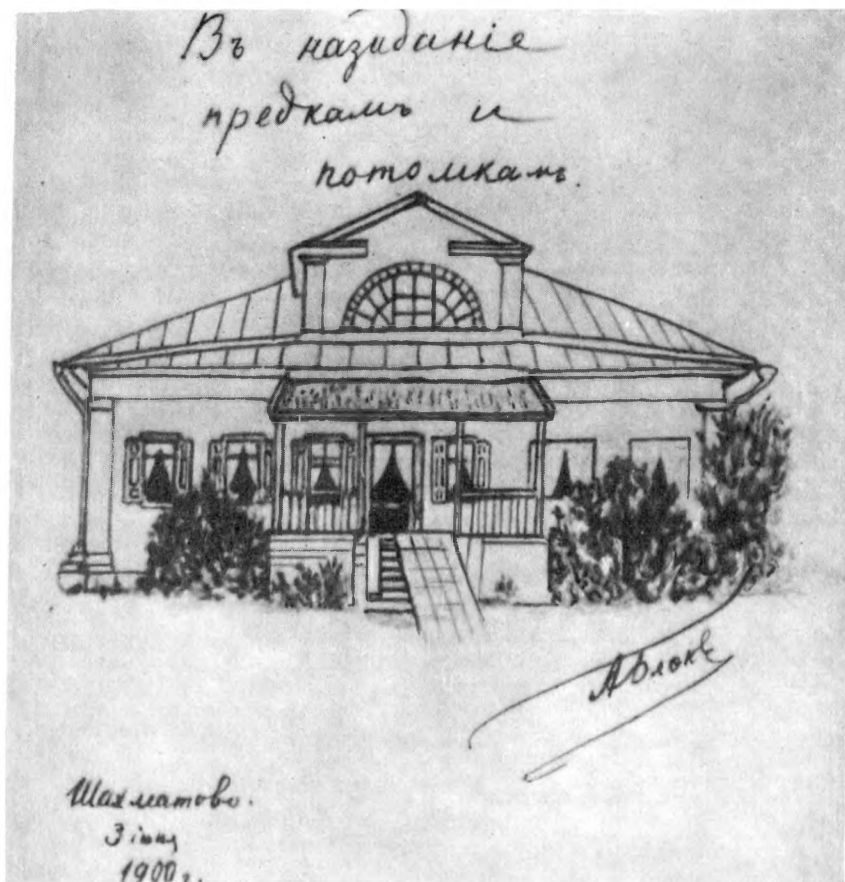 Въ назиданіе
предкамъ и
потомкамъ.
АБлокъ
Шахматово.
3 іюня
1900 г.